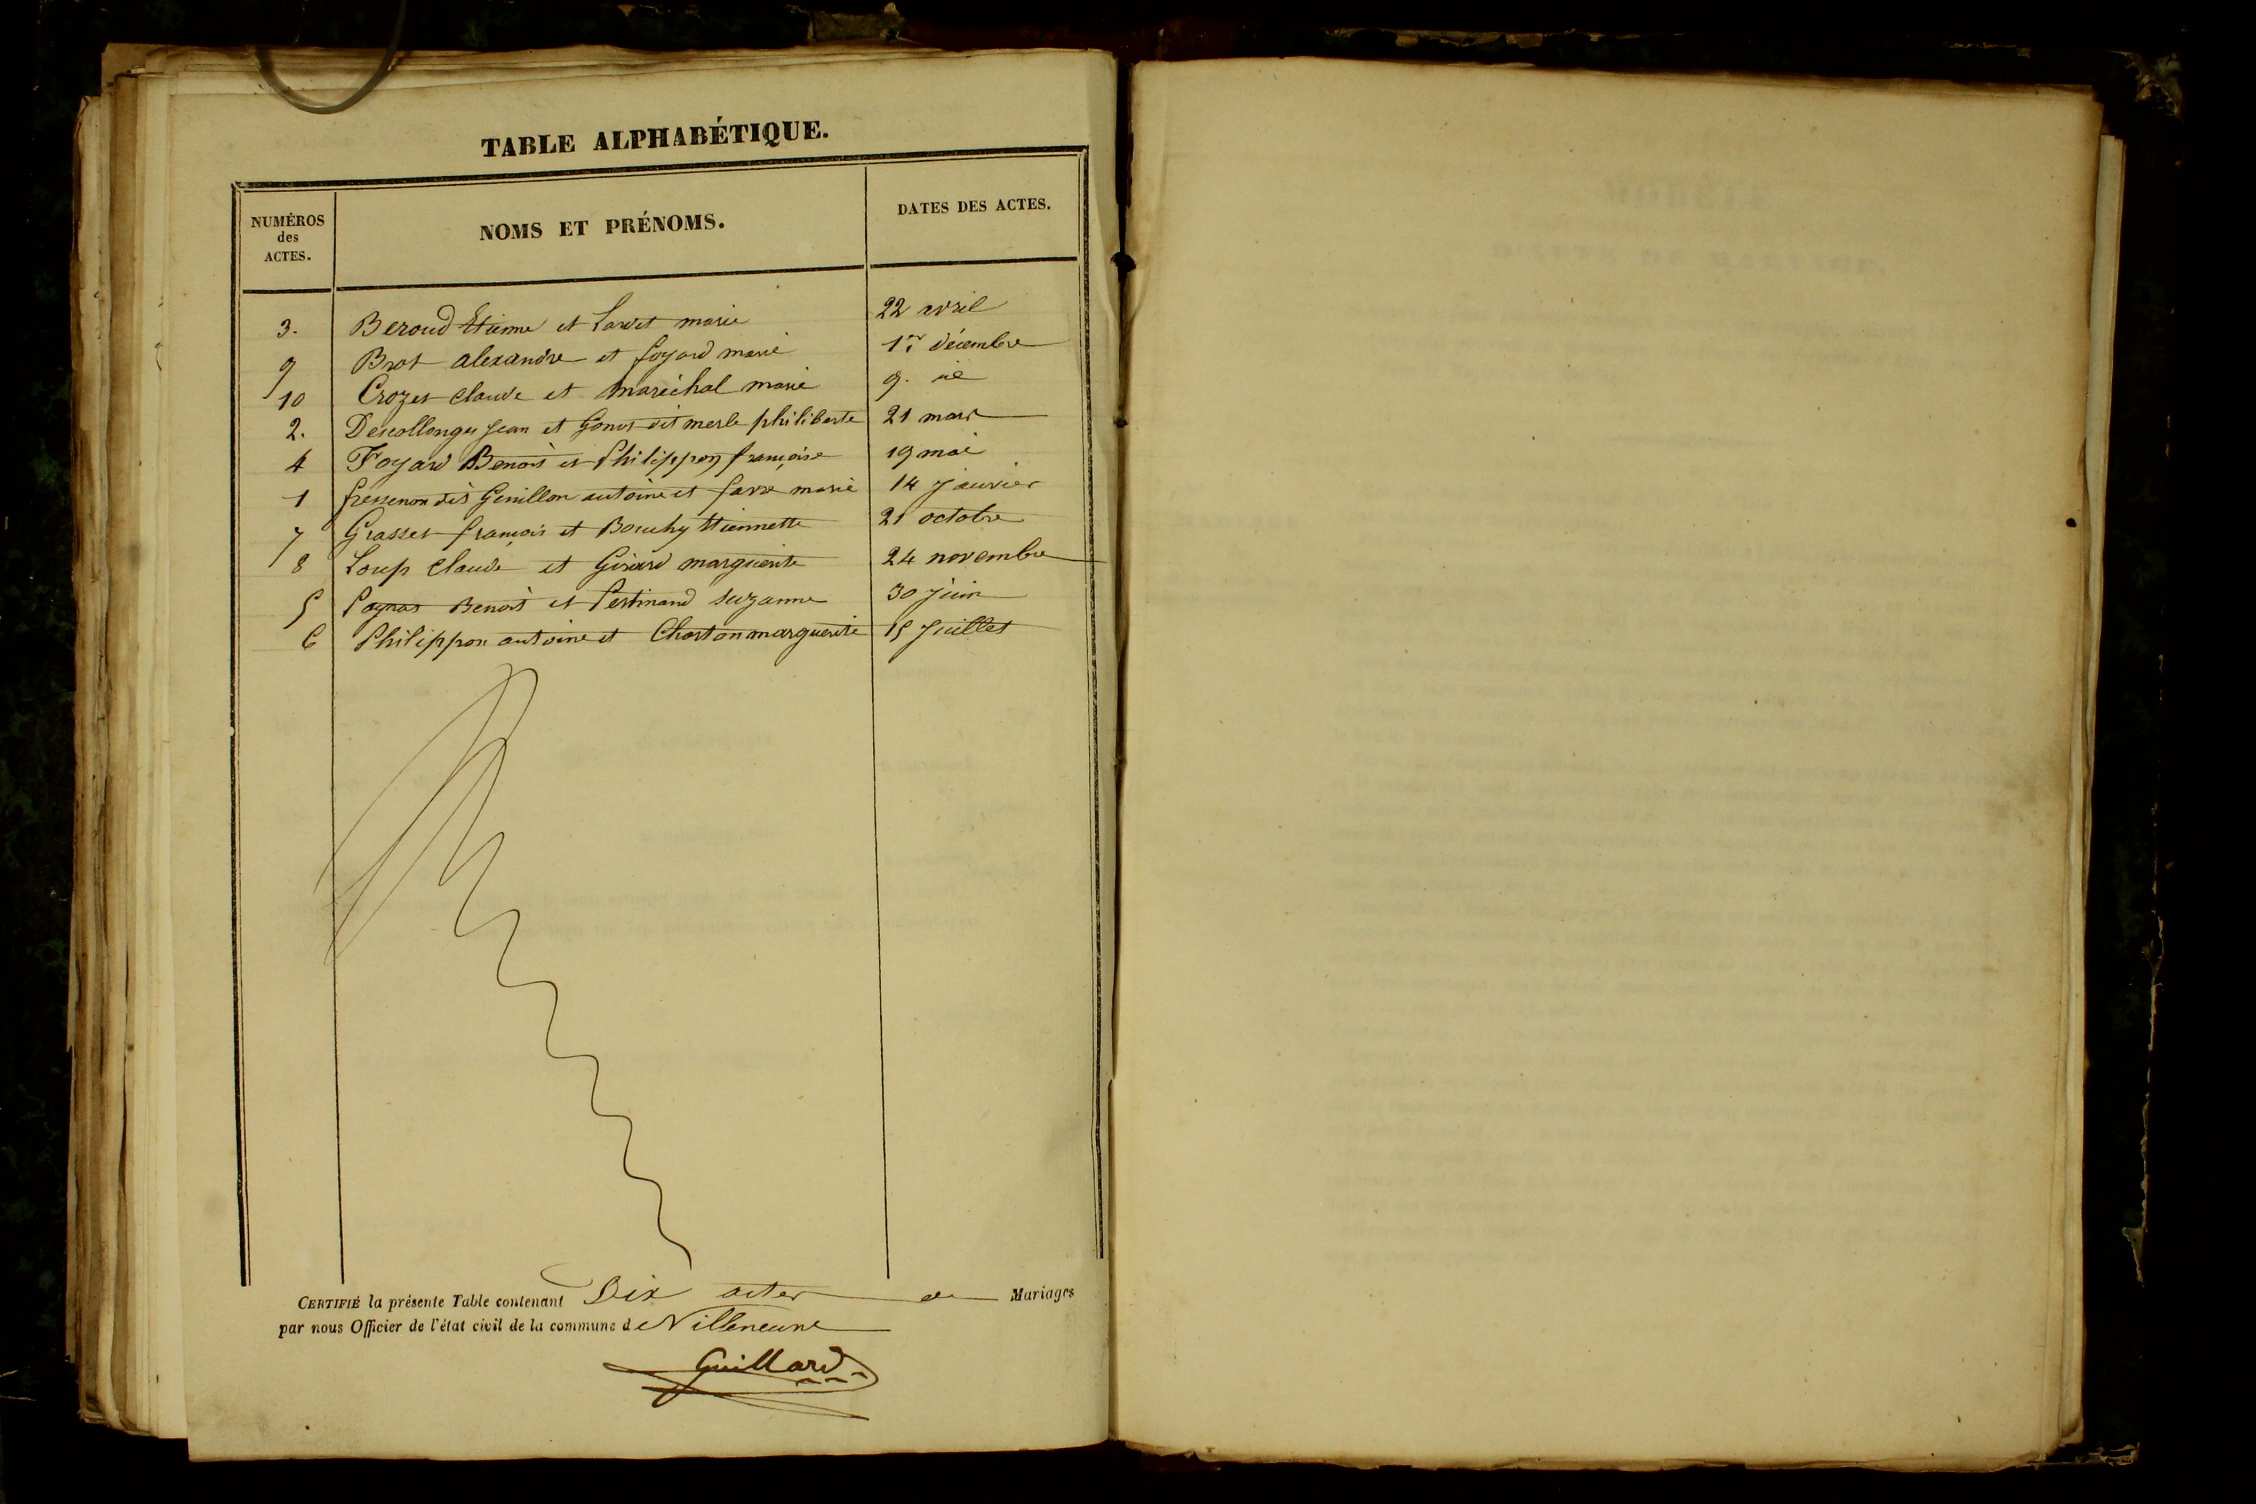 TABLE ALPHABÉTIQUE.
NUMÉROS des ACTES. NOMS ET PRÉNOMS. DATES DES ACTES.
3. Beroud Etienne et Lardet marie 22 avril
9 Brot alexandre et foyard marie 1er décembre
10 Crozet claude et maréchal marie 9. id
2. Descollonges jean et Gonod dit merle philiberte 21 mars
4 Foyard Benoit et Philippon françoise 19 mai
1 fressenon dit Genillon antoine et favre marie 14 janvier
7 Grasset françois et Bouchy Etiennette 21 octobre
8 Loup claude et Girard marguerite 24 novembre
5 Pagnas Benoit et Pertinand suzanne 30 juin
6 Philippon antoine et Charton marguerite 15 juillet
CERTIFIÉ la présente Table contenant Dix actes de Mariages
par nous Officier de l'état civil de la commune de Villeneuve
Guillard